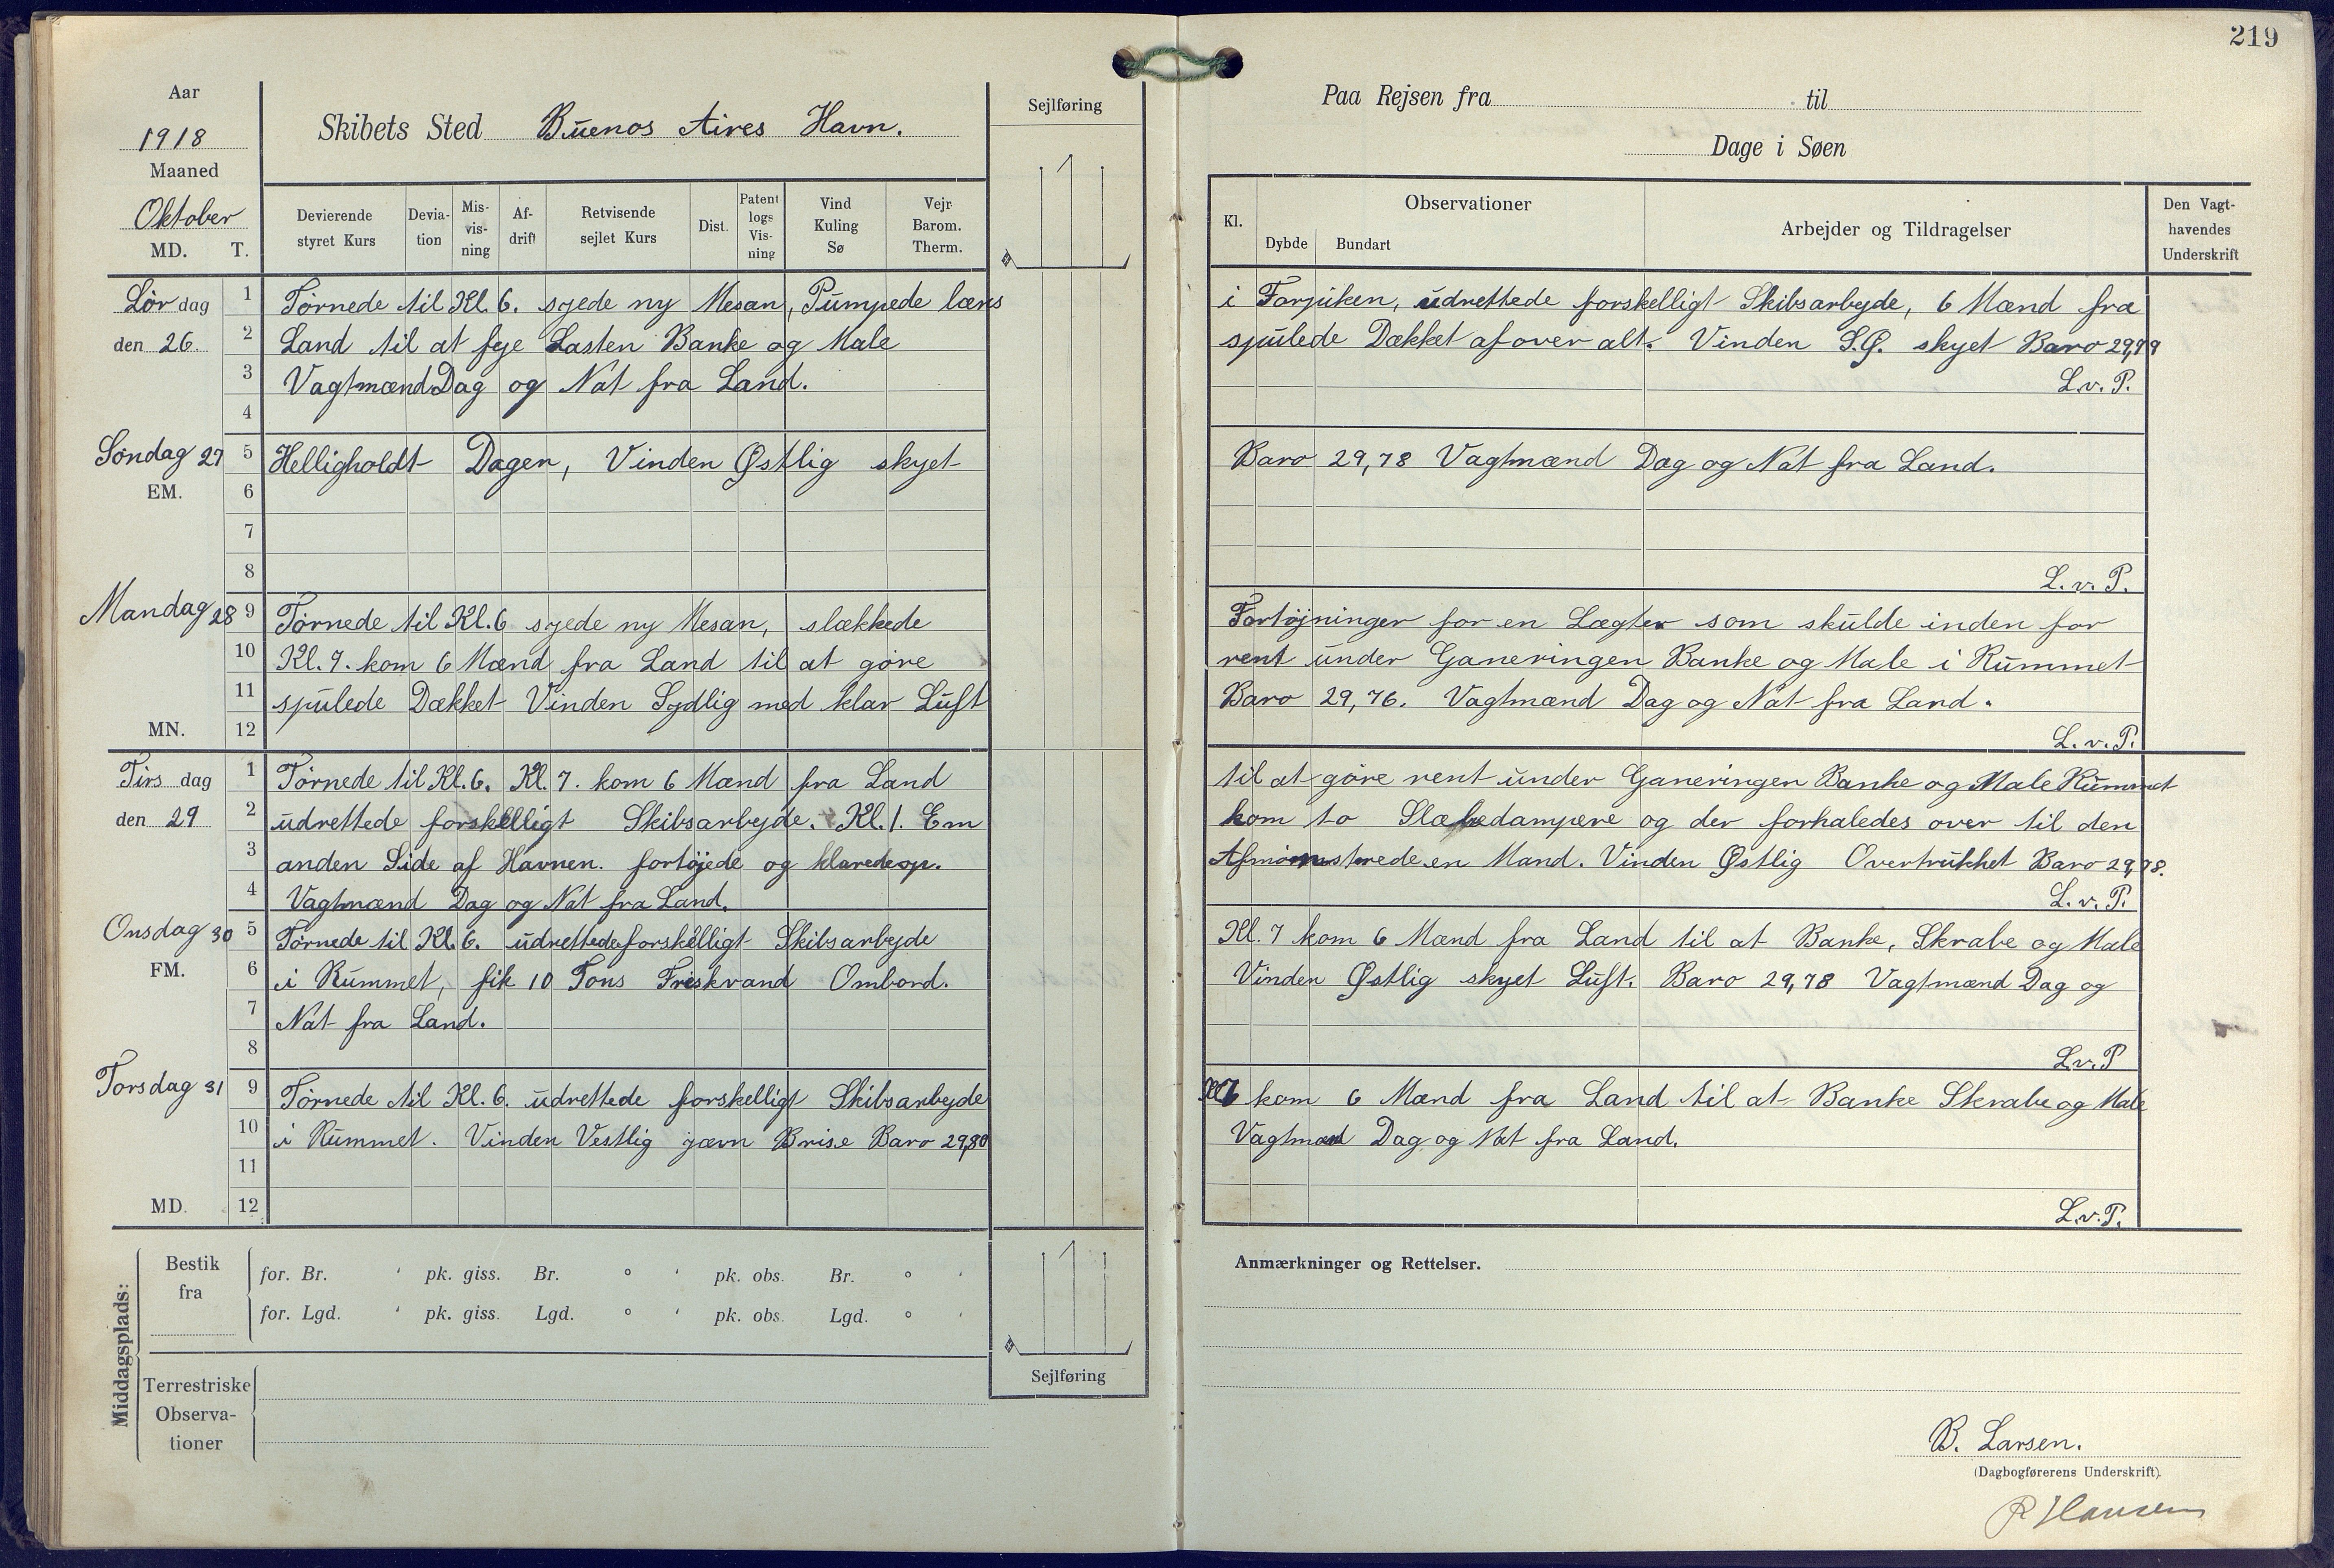 219
Aar
1918
Maaned
Oktober
MD. T.
Skibets Sted Buenos Aires Havn.
Devierende styret Kurs
Devia-tion
Mis-vis-ning
Af-drift
Retvisende sejlet Kurs
Dist.
Patent logs Vis-ning
Vind Kuling Sø
Vejr Barom. Therm.
Sejlføring
Lør dag
den 26.
1 Tørnede til Kl. 6. syede ny Mesan, Pumpede læns
2 Land til at feje Lasten Banke og Male
3 Vagtmænd Dag og Nat fra Land.
4
Søndag 27
EM.
5 Helligholdt Dagen, Vinden Østlig skyet
6
7
8
Mandag 28
9 Tørnede til Kl. 6 syede ny Mesan, slækkede
10 Kl. 7. kom 6 Mænd fra Land til at gøre
11 spulede Dækket Vinden Sydlig med klar Luft
MN. 12
Tirs dag
den 29
1 Tørnede til Kl. 6. Kl. 7. kom 6 Mænd fra Land
2 udrettede forskelligt Skibsarbejde. Kl. 1. Em
3 anden Side af Havnen. fortøjede og klarede op.
4 Vagtmænd Dag og Nat fra Land.
Onsdag 30
FM.
5 Tørnede til Kl. 6. udrettede forskelligt Skibsarbejde
6 i Rummet, fik 10 Tons Friskvand Ombord.
7 Nat fra Land.
8
Torsdag 31
9 Tørnede til Kl. 6. udrettede forskelligt Skibsarbejde
10 i Rummet. Vinden Vestlig jævn Brise Baro 29,80
11
MD. 12
Middagsplads:
Bestik fra
for. Br. ' pk. giss. Br. ° ' pk. obs. Br. ° '
for. Lgd. ' pk. giss. Lgd. ° ' pk. obs. Lgd. ° '
Terrestriske
Observa-
tioner
Sejlføring
Paa Rejsen fra til
Dage i Søen
Kl.
Observationer
Dybde
Bundart
Arbejder og Tildragelser
Den Vagt-havendes Underskrift
i Forpiken, udrettede forskelligt Skibsarbejde, 6 Mænd fra
spulede Dækket af over alt. Vinden S.Ø. skyet Baro 29,79
L.v.P.
Baro 29,78 Vagtmænd Dag og Nat fra Land.
L.v.P.
Fortøjninger for en Lægter som skulde inden for
rent under Ganeringen Banke og Male i Rummet
Baro 29,76. Vagtmænd Dag og Nat fra Land.
L.v.P.
til at gøre rent under Ganeringen Banke og Male Rummet
kom to Slæbedampere og der forhaledes over til den
Afmønstrede en Mand. Vinden Østlig Overtrukket Baro 29,78.
L.v.P.
Kl. 7 kom 6 Mænd fra Land til at Banke, Skrabe og Male
Vinden Østlig skyet Luft. Baro 29,78 Vagtmænd Dag og
L.v.P
Kl 7 kom 6 Mænd fra Land til at Banke Skrabe og Male
Vagtmænd Dag og Nat fra Land.
L.v.P.
Anmærkninger og Rettelser.
B. Larsen.
(Dagbogførerens Underskrift).
R Hansen